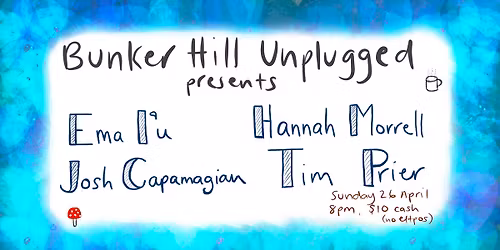 Bunker Hill Unplugged
presents
Ema I'u Hannah Morrell
Josh Capamagian Tim Prier
Sunday 26 April
8pm, $10 cash
(no eftpos)